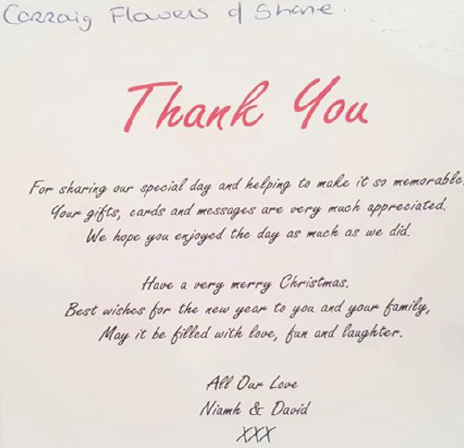 Carraig Flowers & Shane.
Thank You
For sharing our special day and helping to make it so memorable.
Your gifts, cards and messages are very much appreciated.
We hope you enjoyed the day as much as we did.
Have a very merry Christmas.
Best wishes for the new year to you and your family,
May it be filled with love, fun and laughter.
All Our Love
Niamh & David
XXX